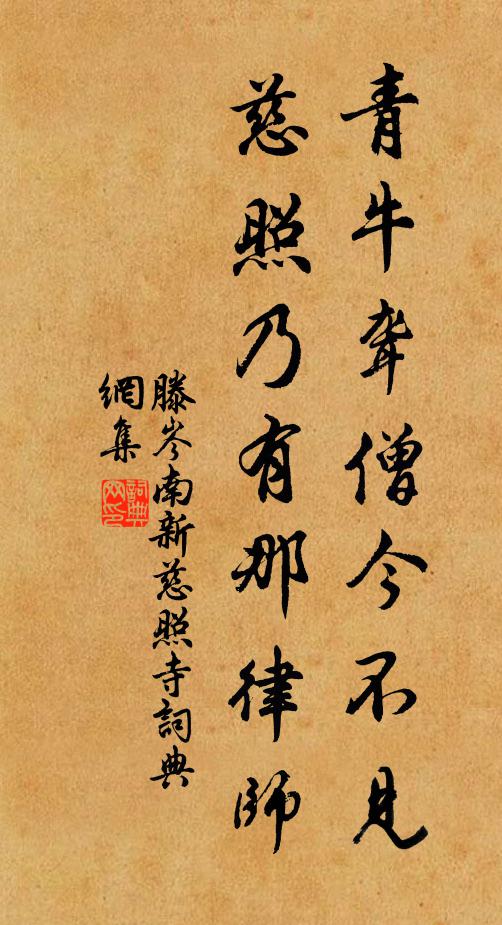 青牛聋僧今不見
慈照乃有那律師
滕岑南新慈照寺詞典
網集
詞典
网印